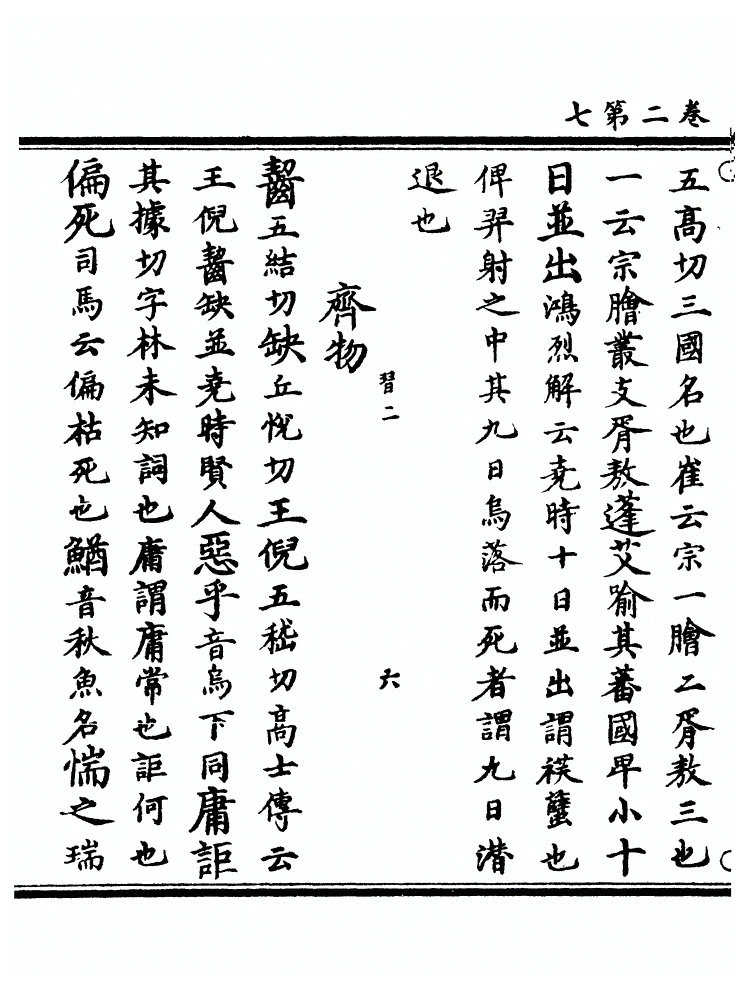 卷二第七
五高切三國名也崔云宗一膾二胥敖三也
一云宗膾叢支胥敖蓬艾喻其蕃國卑小十
日並出鴻烈解云堯時十日並出謂祅蠥也
俾羿射之中其九日烏落而死者謂九日潜
退也
習二 六
齊物
齧五結切缺丘悅切王倪五嵇切高士傳云
王倪齧缺並堯時賢人惡乎音烏下同庸詎
其據切字林未知詞也庸謂庸常也詎何也
偏死司馬云偏枯死也鰌音秋魚名惴之瑞